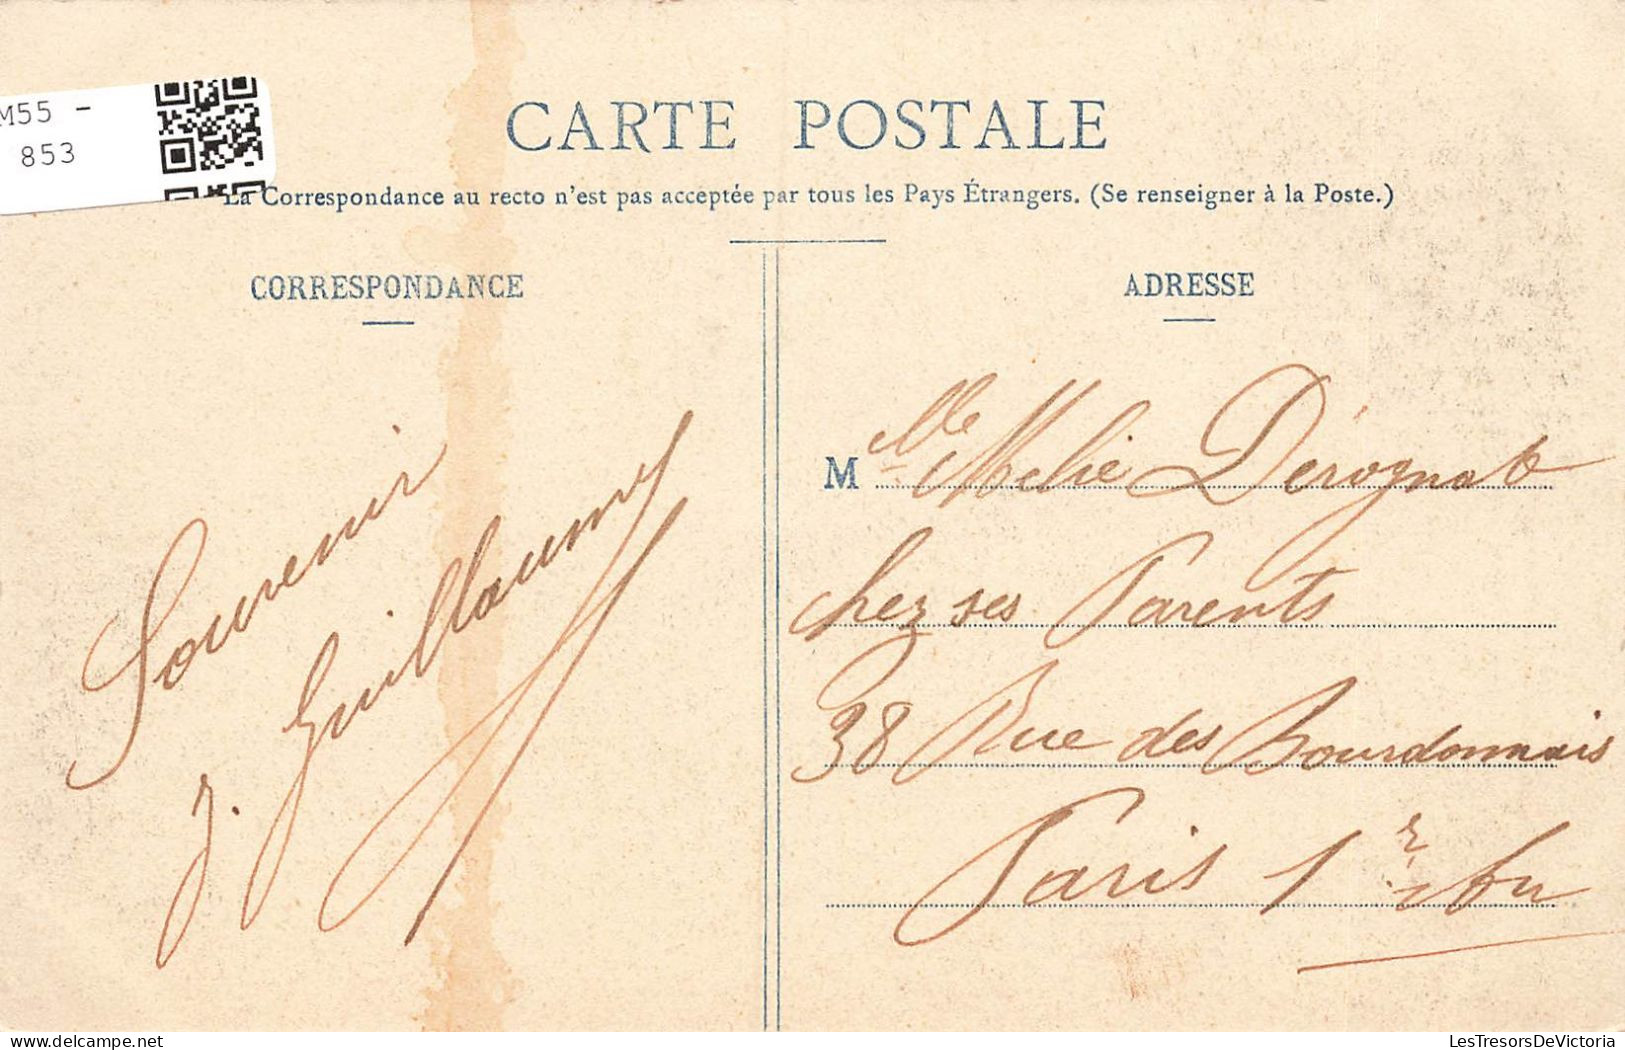 M55 -
853
CARTE POSTALE
La Correspondance au recto n'est pas acceptée par tous les Pays Étrangers. (Se renseigner à la Poste.)
CORRESPONDANCE
Souvenir
J. Guillaumy
ADRESSE
Mlle Mélie Dérognat
chez ses Parents
38 Rue des Bourdonnais
Paris 1er
LesTresorsDeVictoria